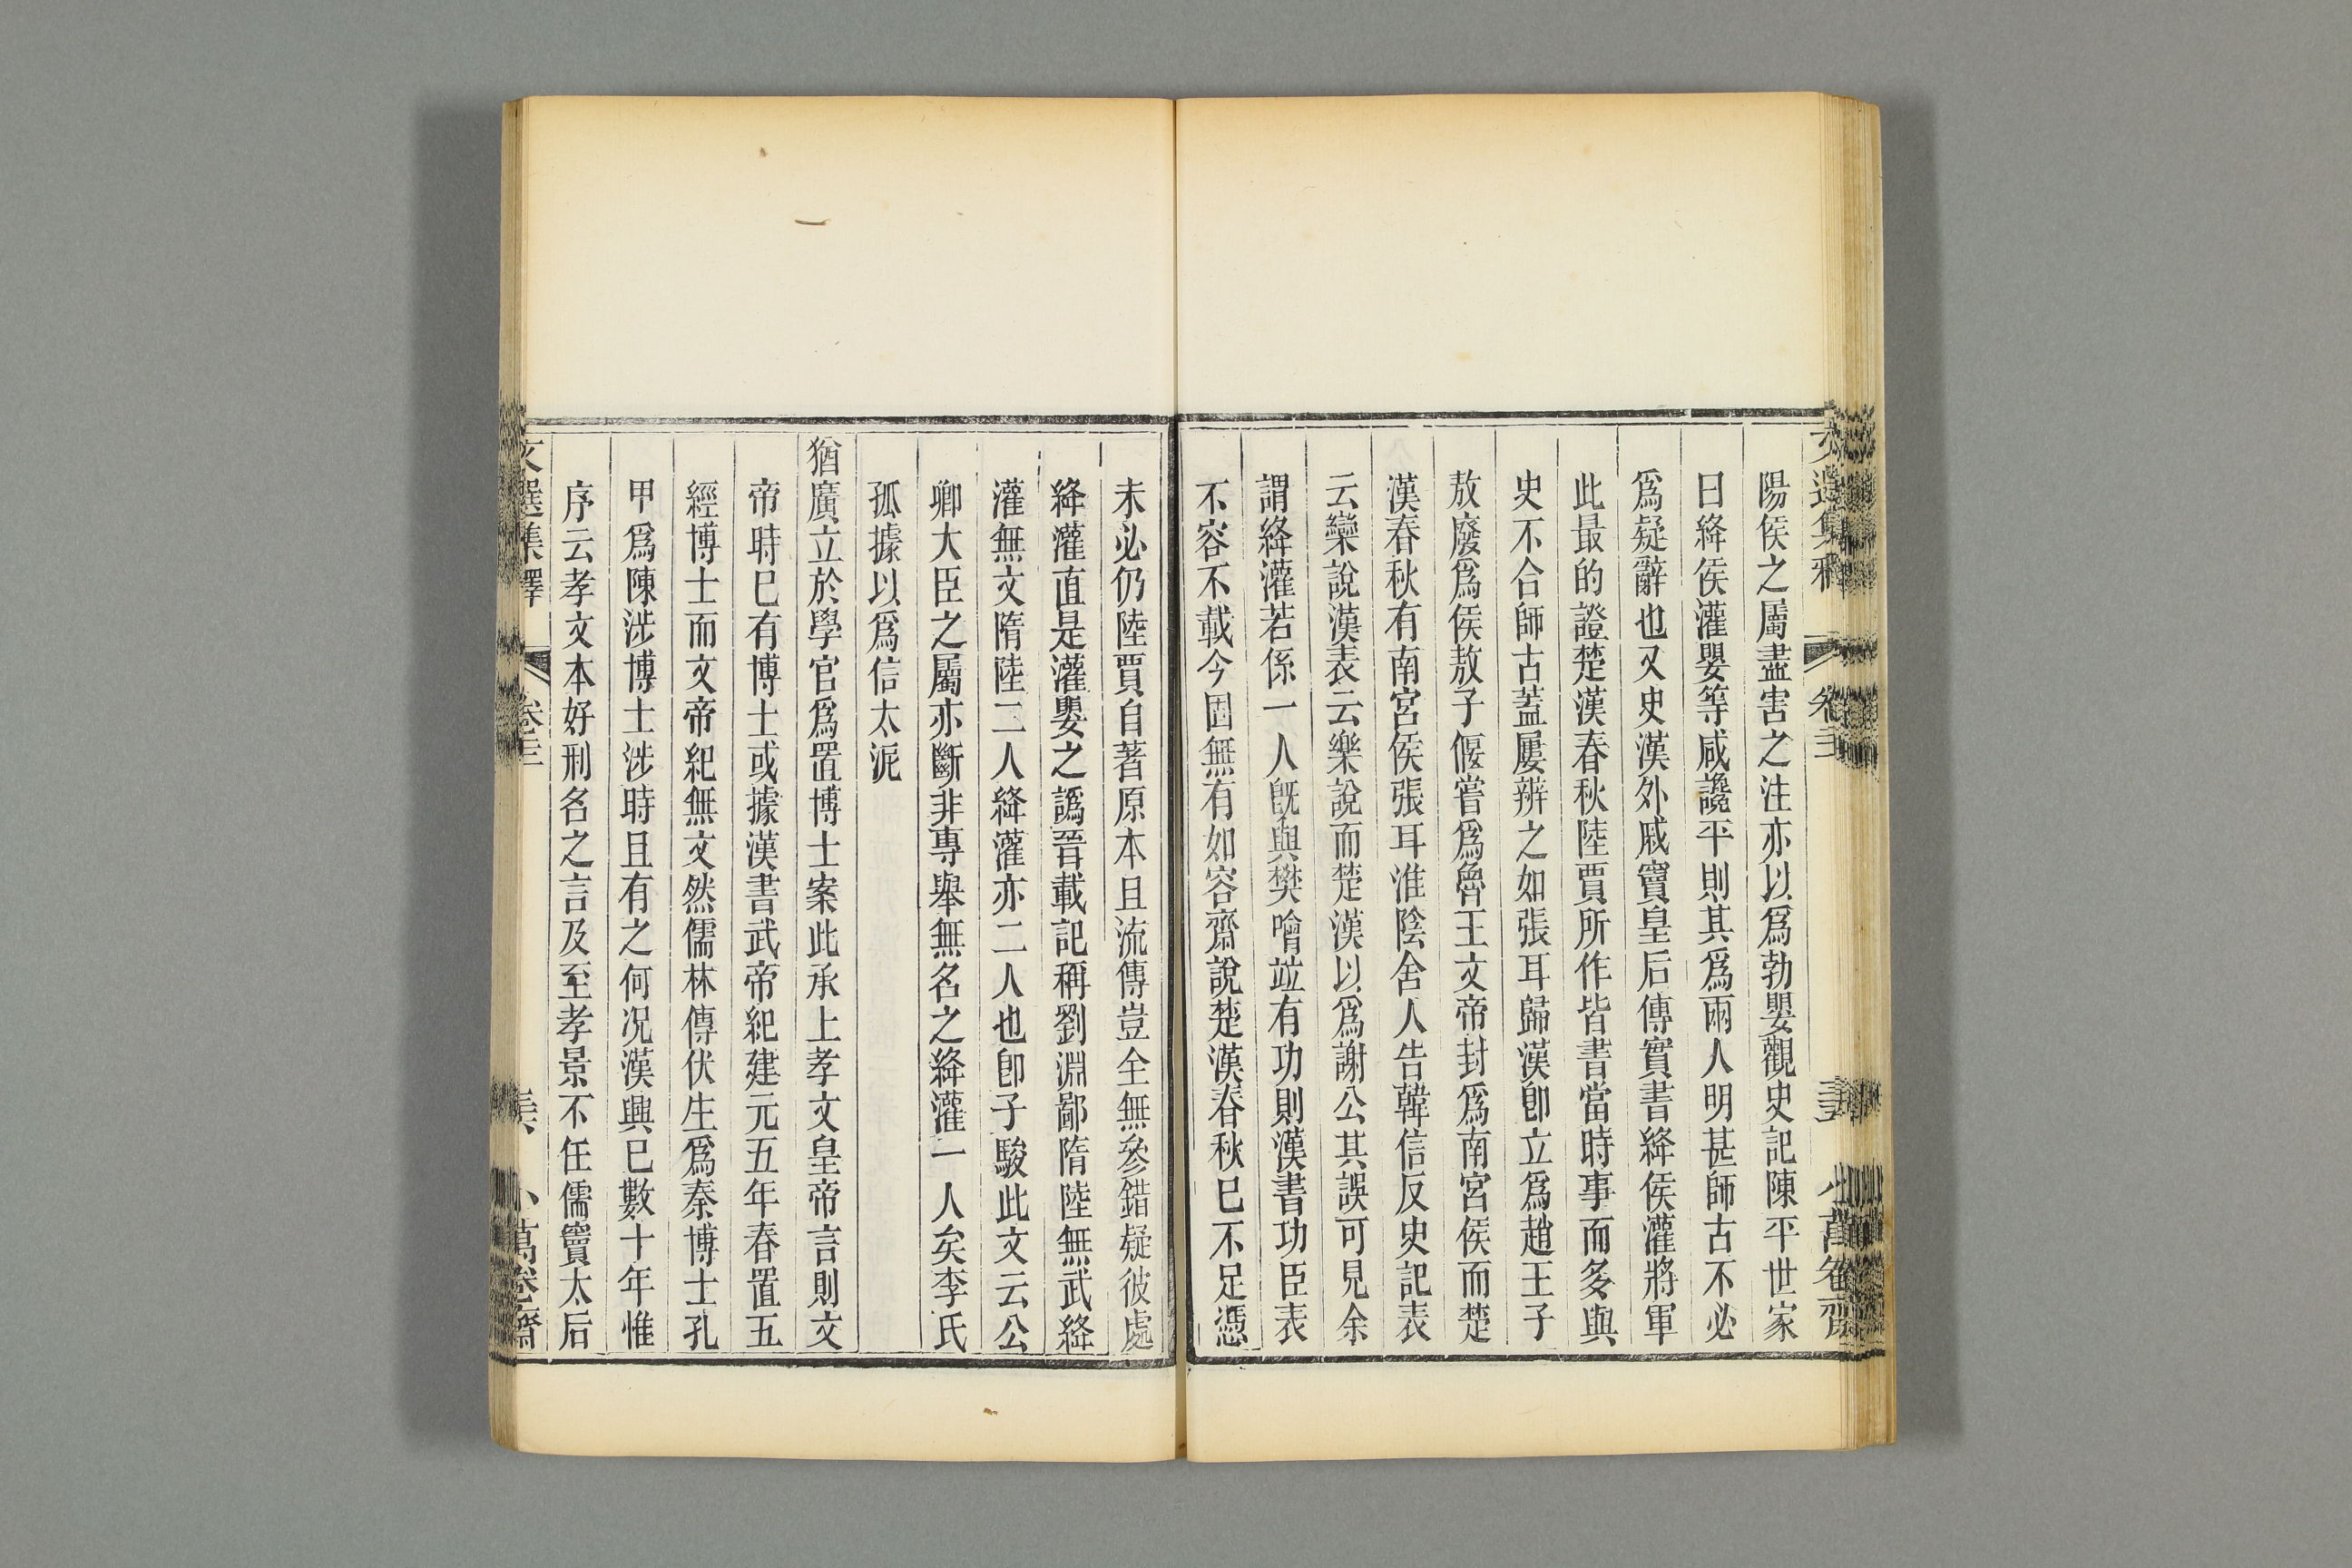 陽侯之屬盡害之注亦以爲勃嬰觀史記陳平世家
曰絳侯灌嬰等咸讒平則其爲兩人明甚師古不必
爲疑辭也又史漢外戚竇皇后傳實書絳侯灌將軍
此最的證楚漢春秋陸賈所作皆書當時事而多與
史不合師古蓋屢辨之如張耳歸漢卽立爲趙王子
敖廢爲侯敖子偃嘗爲魯王文帝封爲南宮侯而楚
漢春秋有南宮侯張耳淮陰舍人告韓信反史記表
云欒說漢表云樂說而楚漢以爲謝公其誤可見余
謂絳灌若係一人旣與樊噲竝有功則漢書功臣表
不容不載今固無有如容齋說楚漢春秋已不足憑
未必仍陸賈自著原本且流傳豈全無參錯疑彼處
絳灌直是灌嬰之譌晉載記稱劉淵鄙隋陸無武絳
灌無文隋陸二人絳灌亦二人也卽子駿此文云公
卿大臣之屬亦斷非專舉無名之絳灌一人矣李氏
孤據以爲信太泥
猶廣立於學官爲置博士案此承上孝文皇帝言則文
帝時已有博士或據漢書武帝紀建元五年春置五
經博士而文帝紀無文然儒林傳伏生爲秦博士孔
甲爲陳涉博士涉時且有之何况漢興已數十年惟
序云孝文本好刑名之言及至孝景不任儒竇太后
文選集釋
小萬卷齋